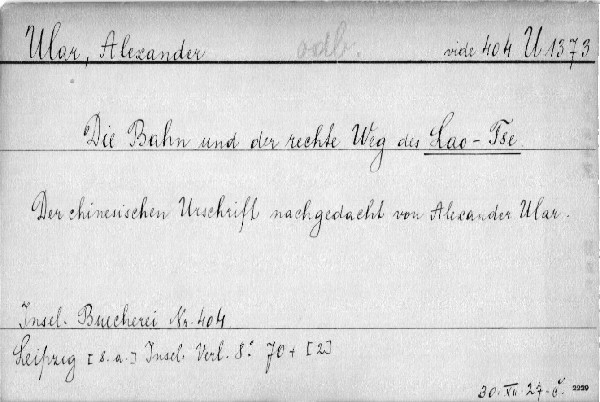 Ular, Alexander odb. vide 404 U 1373
Die Bahn und der rechte Weg des Lao-Tse.
Der chinesischen Urschrift nachgedacht von Alexander Ular.
Insel-Buecherei Nr. 404
Leipzig [s. a.] Insel Verl. 8° 70 + [2]
30. XII. 27. Č. 2229